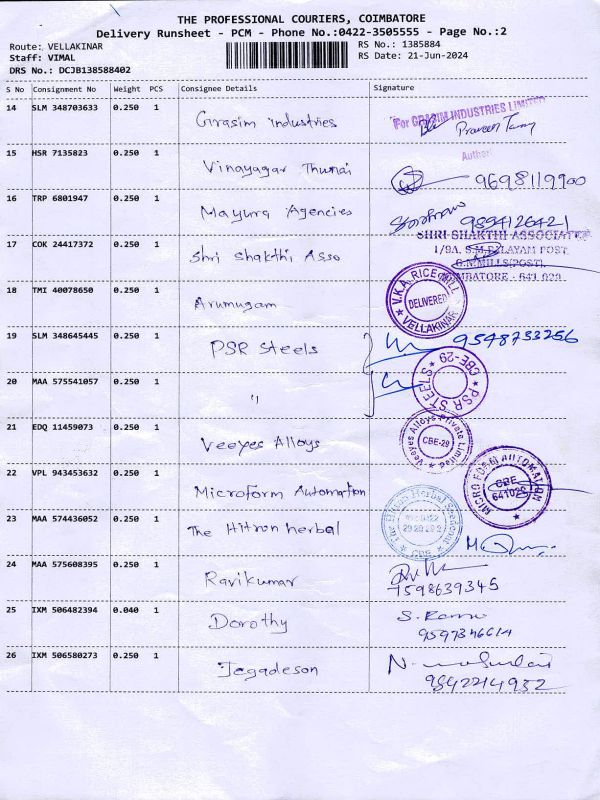 THE PROFESSIONAL COURIERS, COIMBATORE
Delivery Runsheet - PCM - Phone No.:0422-3505555 - Page No.:2
Route: VELLAKINAR RS No.: 1385884
Staff: VIMAL RS Date: 21-Jun-2024
DRS No.: DCJB138588402
S No Consignment No Weight PCS Consignee Details Signature
14 SLM 348703633 0.250 1 Grasim industries For GRASIM INDUSTRIES LIMITED
Praveen
15 HSR 7135823 0.250 1 Vinayagar Thunai 9698119900
16 TRP 6801947 0.250 1 Mayura Agencies 9894126421
17 COK 24417372 0.250 1 Shri Shakthi Asso SHRI SHAKTHI ASSOCIATES
18 TMI 40078650 0.250 1 Arumugam V.K.A. RICE MILL DELIVERED VELLAKINAR
19 SLM 348645445 0.250 1 PSR Steels 9548733256
20 MAA 575541057 0.250 1 " PSR STEELS CBE-29
21 EDQ 11459073 0.250 1 Veeyes Alloys Veeyes Alloys Private Limited CBE-29
22 VPL 943453632 0.250 1 Microform Automation AUTOMATION CBE 641029
23 MAA 574436052 0.250 1 The Hitron herbal
24 MAA 575608395 0.250 1 Ravikumar 7598639345
25 IXM 506482394 0.040 1 Dorothy
26 IXM 506580273 0.250 1 Jegadeson 9842214932